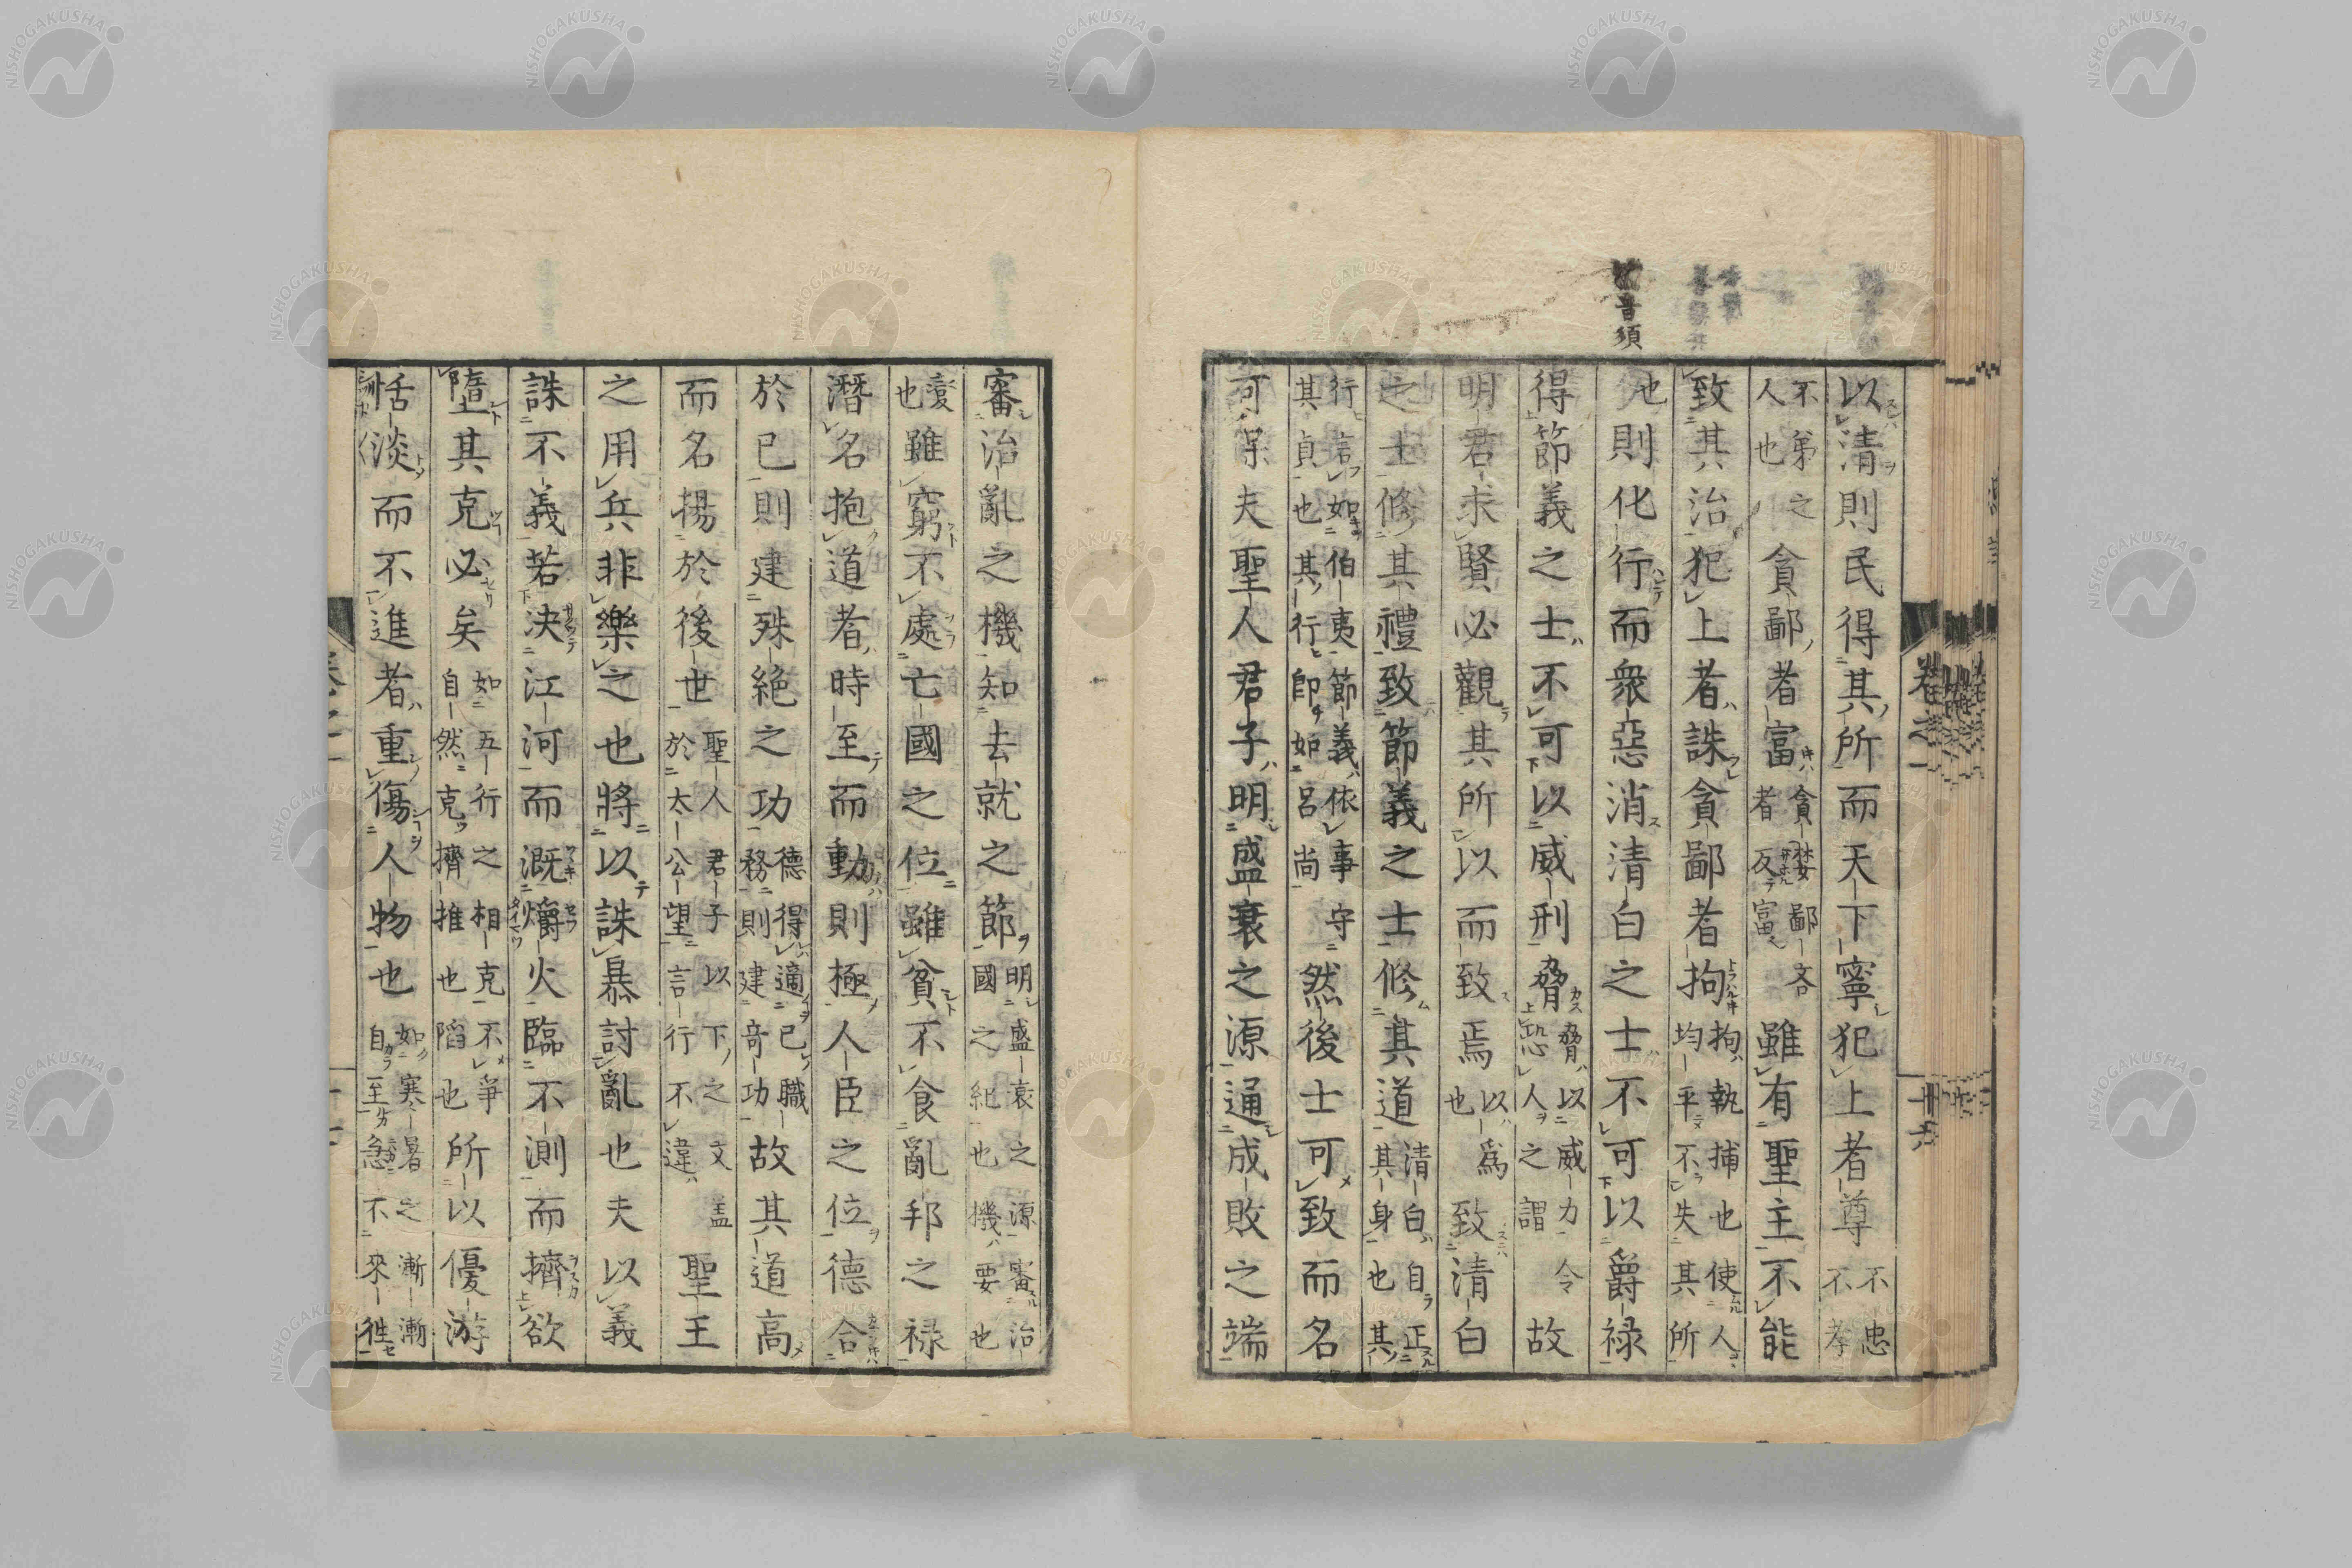 音須
以清則民得其所而天下寧犯上者尊不忠不孝
不弟之人也貪鄙者富貪婪鄙吝者反富雖有聖主不能
致其治犯上者誅貪鄙者拘拘執捕也使人均平不失其所
也則化行而衆惡消清白之士不可以爵禄
得節義之士不可以威刑脅脅以威力令恐人之謂故
明君求賢必觀其所以而致焉以爲也致清白
之士修其禮致節義之士修其道清白自正其身也其
行言如伯夷節義依事守其貞也其行即如呂尚然後士可致而名
可保夫聖人君子明盛衰之源通成敗之端
審治亂之機知去就之節明盛衰之源審治國之紀也機要也
變也雖窮不處亡國之位雖貧不食亂邦之禄
潛名抱道者時至而動則極人臣之位德合
於已則建殊絶之功德得適已職務則建奇功故其道高
而名揚於後世聖人君子以下之文盖於太公望言行不違聖王
之用兵非樂之也將以誅暴討亂也夫以義
誅不義若決江河而溉爝火臨不測而擠欲
墮其克必矣如五行之相克不爭自然克擠推也陷也所以優游
恬淡而不進者重傷人物也如寒暑之漸漸自至急不來徃